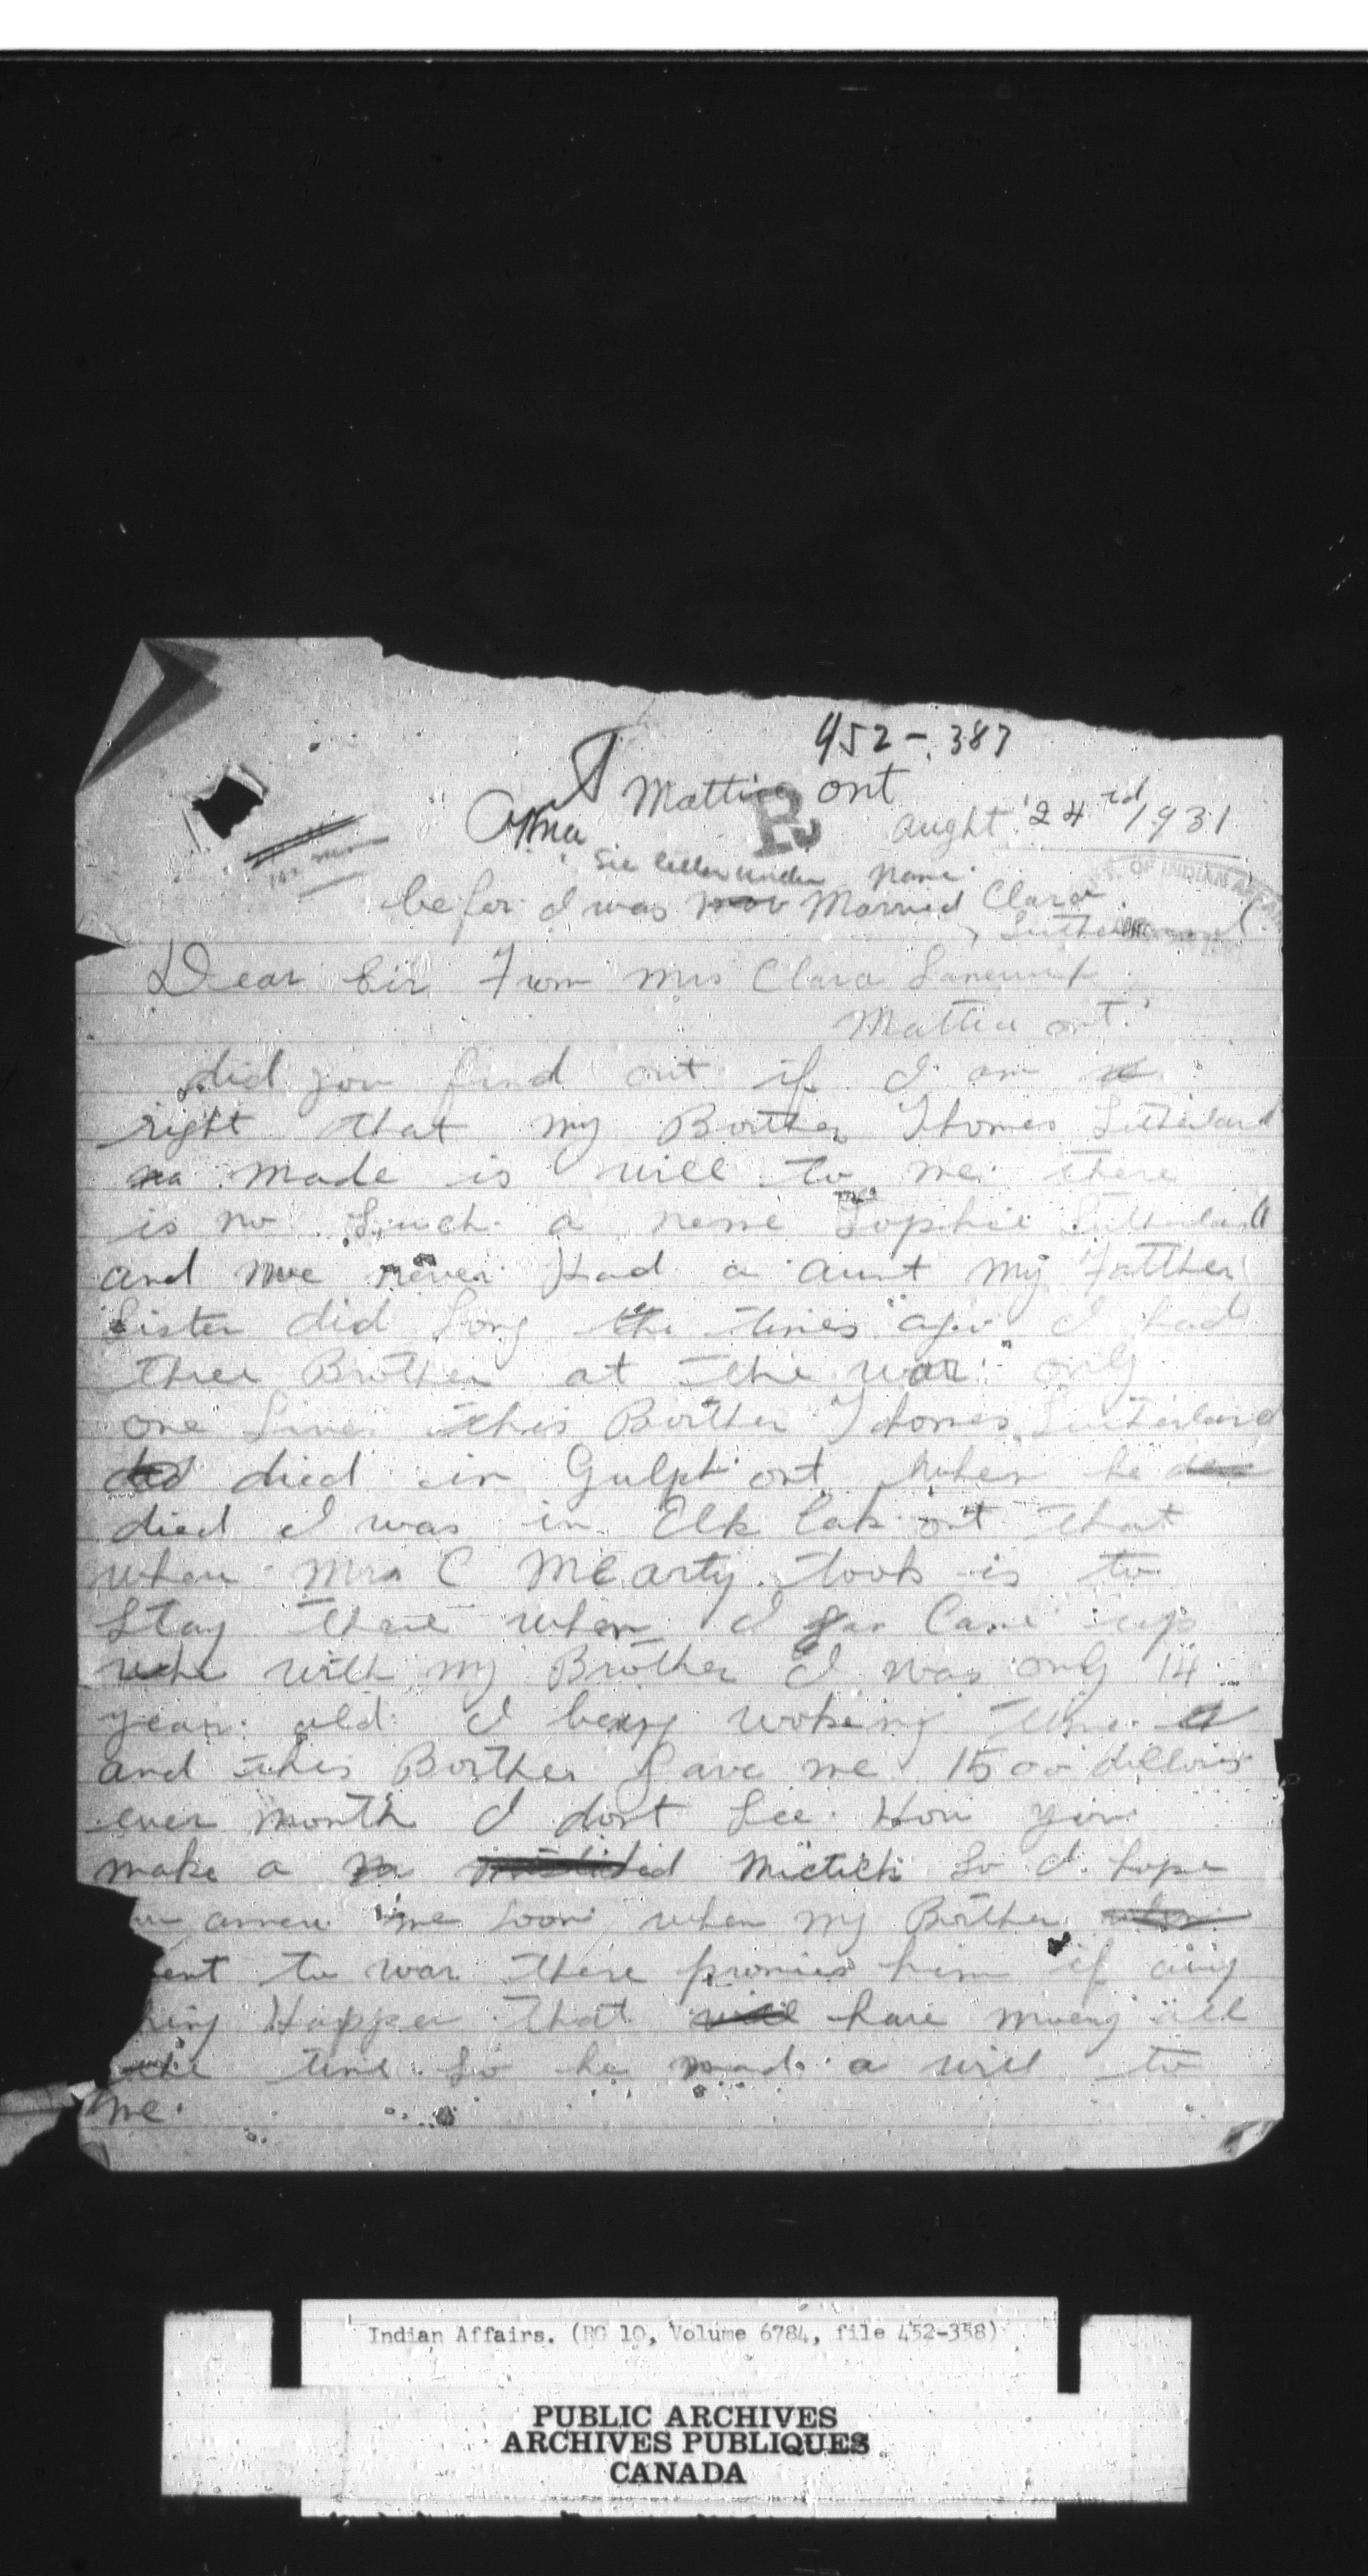 452-387
Mattice ont
aught 24 rd 1931
R
name
befor I was Married Clara
DEPT. OF INDIAN AFFAIRS
Dear Sir From Mrs Clara
Mattice ont.
did you find out if I am
right that my Borther Thomes Sutherland
made is will to me there
is no Such a neme Sophie Sutherland
and we never Had a aunt my Fatther
Sister did Long the times ago I had
three Brother at the war only
one Lives this Borther Thomes Sutherland
died in Gulph ont when he
died I was in Elk Lak ont that
when Mrs C McCarty took is to
Stay there when I Came up
with my Brother I was only 14
year old I being woking
and this Borther Gave me 1500 dollars
ever month I dont See How you
make a mictick So I hope
me Soon when my Borther
ent to war there promies him if any
hing Happen that have mueny all
the time So he mad a will to
me.
Indian Affairs. (RG 10, Volume 6784, file 452-358)
PUBLIC ARCHIVES
ARCHIVES PUBLIQUES
CANADA